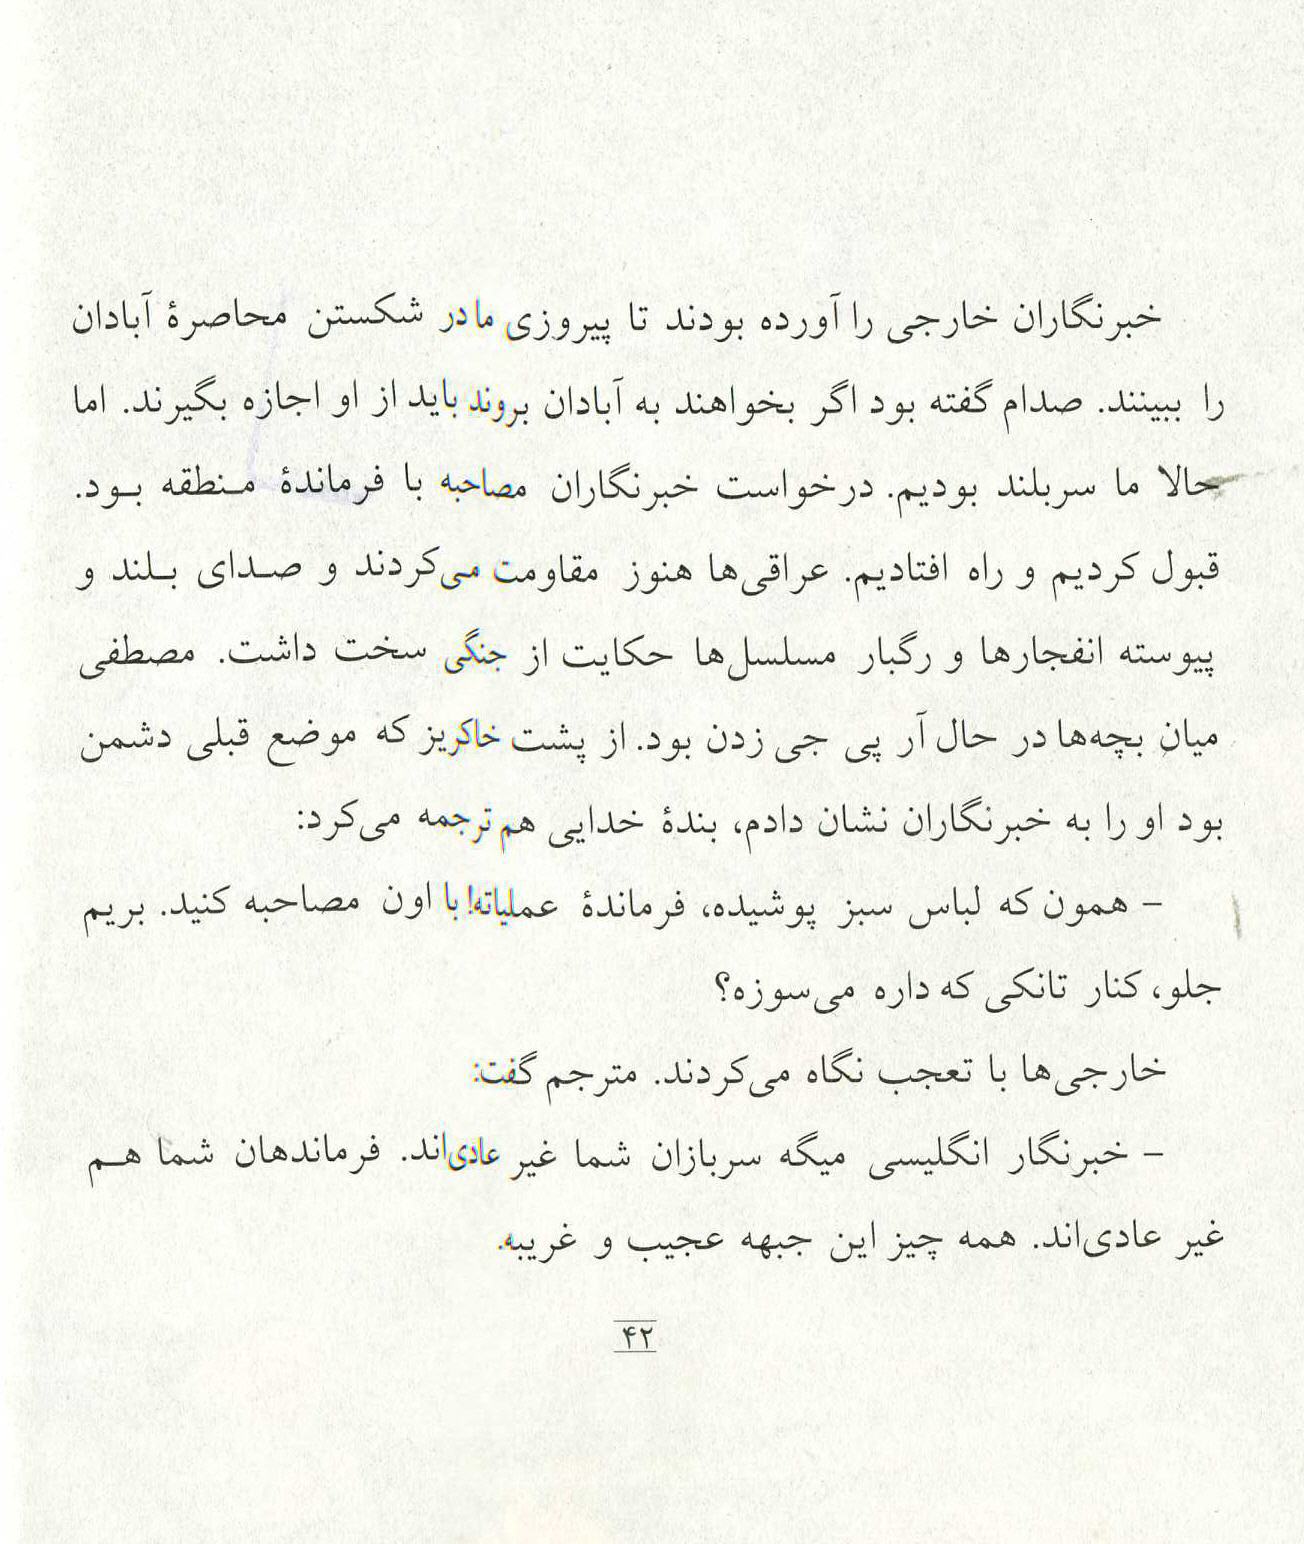 خبرنگاران خارجی را آورده بودند تا پیروزی ما در شکستن محاصرهٔ آبادان
را ببینند. صدام گفته بود اگر بخواهند به آبادان بروند باید از او اجازه بگیرند. اما
حالا ما سربلند بودیم. درخواست خبرنگاران مصاحبه با فرماندهٔ منطقه بود.
قبول کردیم و راه افتادیم. عراقی‌ها هنوز مقاومت می‌کردند و صدای بلند و
پیوسته انفجارها و رگبار مسلسل‌ها حکایت از جنگی سخت داشت. مصطفی
میان بچه‌ها در حال آر پی جی زدن بود. از پشت خاکریز که موضع قبلی دشمن
بود او را به خبرنگاران نشان دادم، بندهٔ خدایی هم ترجمه می‌کرد:
– همون که لباس سبز پوشیده، فرماندهٔ عملیاته! با اون مصاحبه کنید. بریم
جلو، کنار تانکی که داره می‌سوزه؟
خارجی‌ها با تعجب نگاه می‌کردند. مترجم گفت:
– خبرنگار انگلیسی میگه سربازان شما غیر عادی‌اند. فرماندهان شما هم
غیر عادی‌اند. همه چیز این جبهه عجیب و غریبه.
۴۲